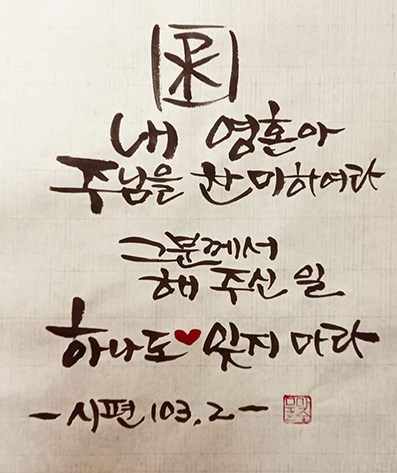 내 영혼아
주님을 찬미하여라
그분께서
해 주신 일
하나도 잊지 마라
-시편 103,2-